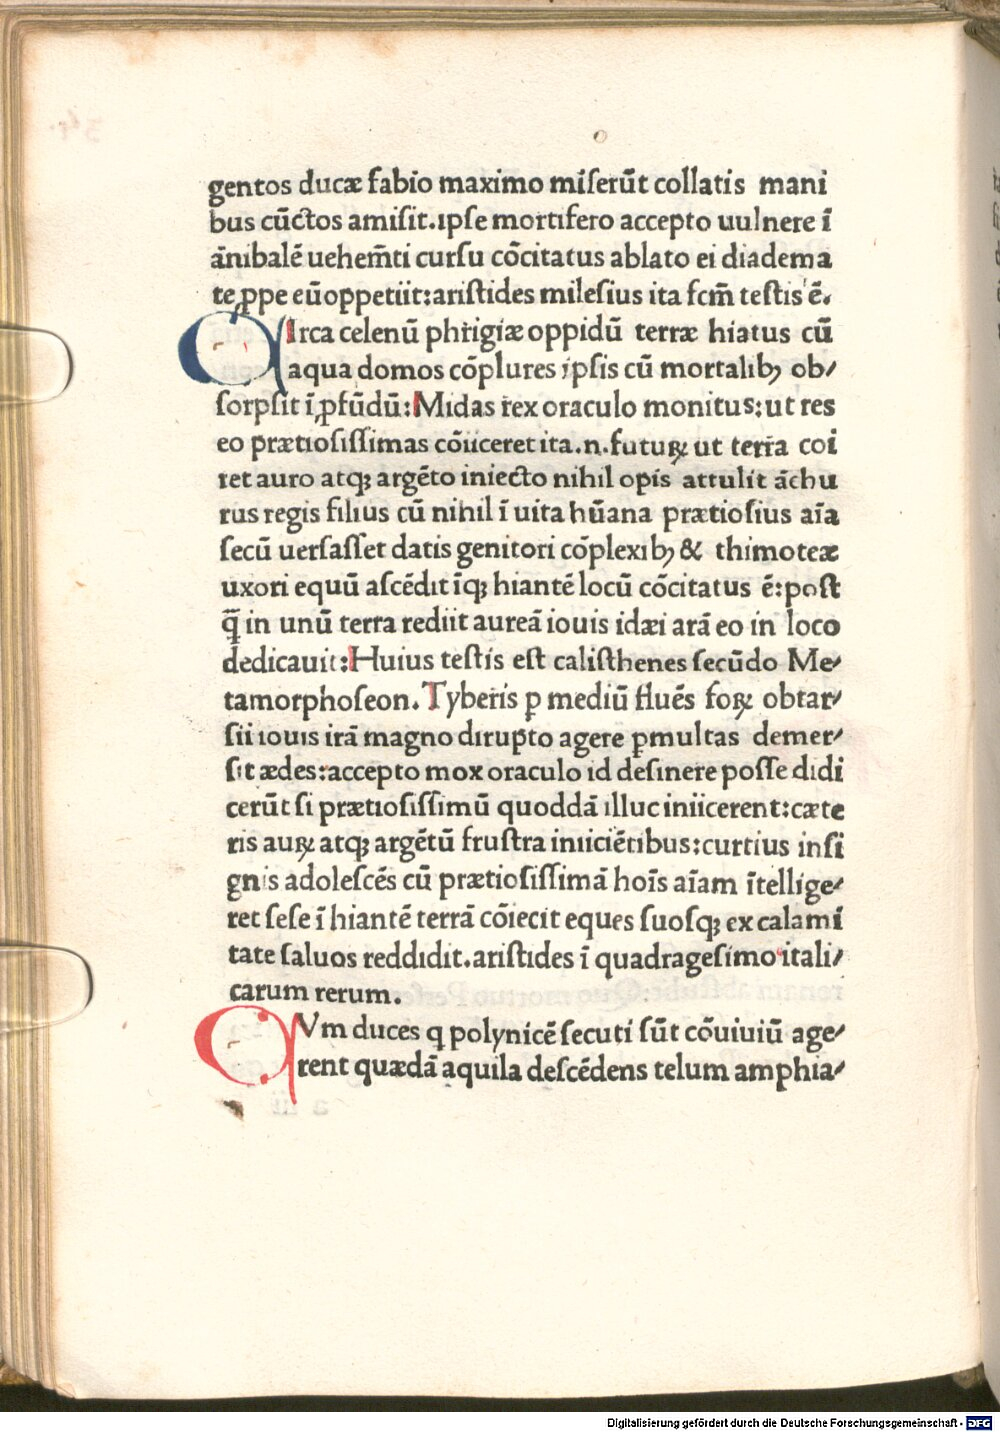 gentos ducæ fabio maximo miſerūt collatis mani
bus cūctos amiſit.ipſe mortifero accepto uulnere ī
ānibalē uehem̄ti curſu cōcitatus ablato ei diadema
te ꝓpe eū oppetiit:ariſtides mileſius ita fcm̄ teſtis ē.
CIrca celenū phrigiæ oppidū terræ hiatus cū
aqua domos cōplures ipſis cū mortalibꝫ ob/
ſorpſit ī ꝓfūdū:Midas rex oraculo monitus:ut res
eo prætioſiſſimas cōiiceret ita.n.futuꝝ ut terra coi
ret auro atqꝫ argēto iniecto nihil opis attulit āchu
rus regis filius cū nihil ī uita hūana prætioſius aīa
ſecū uerſaſſet datis genitori cōplexibꝫ & thimoteæ
uxori equū aſcēdit īqꝫ hiantē locū cōcitatus ē:poſt
q̄ in unū terra rediit aureā iouis idæi arā eo in loco
dedicauit:Huius teſtis eſt caliſthenes ſecūdo Me/
tamorphoſeon. Tyberis ꝑ mediū fluēs foꝝ obtar/
ſii iouis irā magno dirupto agere ꝑmultas demer/
ſit ædes:accepto mox oraculo id deſinere poſſe didi
cerūt ſi prætioſiſſimū quoddā illuc iniicerent:cæte
ris auꝝ atqꝫ argētū fruſtra iniiciētibus:curtius inſi
gnis adoleſcēs cū prætioſiſſimā hoīs aīam ītellige/
ret ſeſe ī hiantē terrā cōiecit eques ſuoſqꝫ ex calami
tate ſaluos reddidit.ariſtides ī quadrageſimo itali/
carum rerum.
CVm duces q polynicē ſecuti ſūt cōuiuiū age/
rent quædā aquila deſcēdens telum amphia/
Digitalisierung gefördert durch die Deutsche Forschungsgemeinschaft - DFG